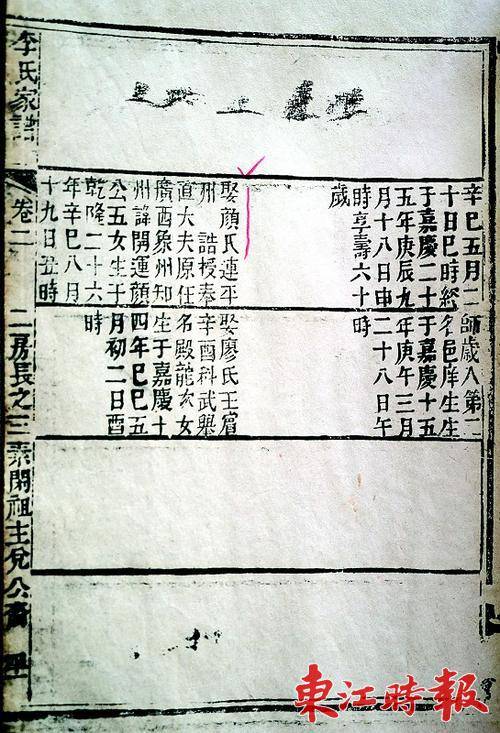 辛巳五月二
十日巳時終
于嘉慶二十
五年庚辰九
月十八日申
時享壽六十
歲
娶顏氏連平
州 誥授奉
直大夫原任
廣西象州知
州諱開運顏
公五女生于
乾隆二十六
年辛巳八月
十九日丑時
師歲入第二
名邑庠生生
于嘉慶十五
年庚午三月
二十八日午
時
娶廖氏王賓
辛酉科武舉
名殿龍次女
生于嘉慶十
四年己巳五
月初二日酉
時
李氏家譜
卷二
二房長之三 素閑祖主兌公
東江時報